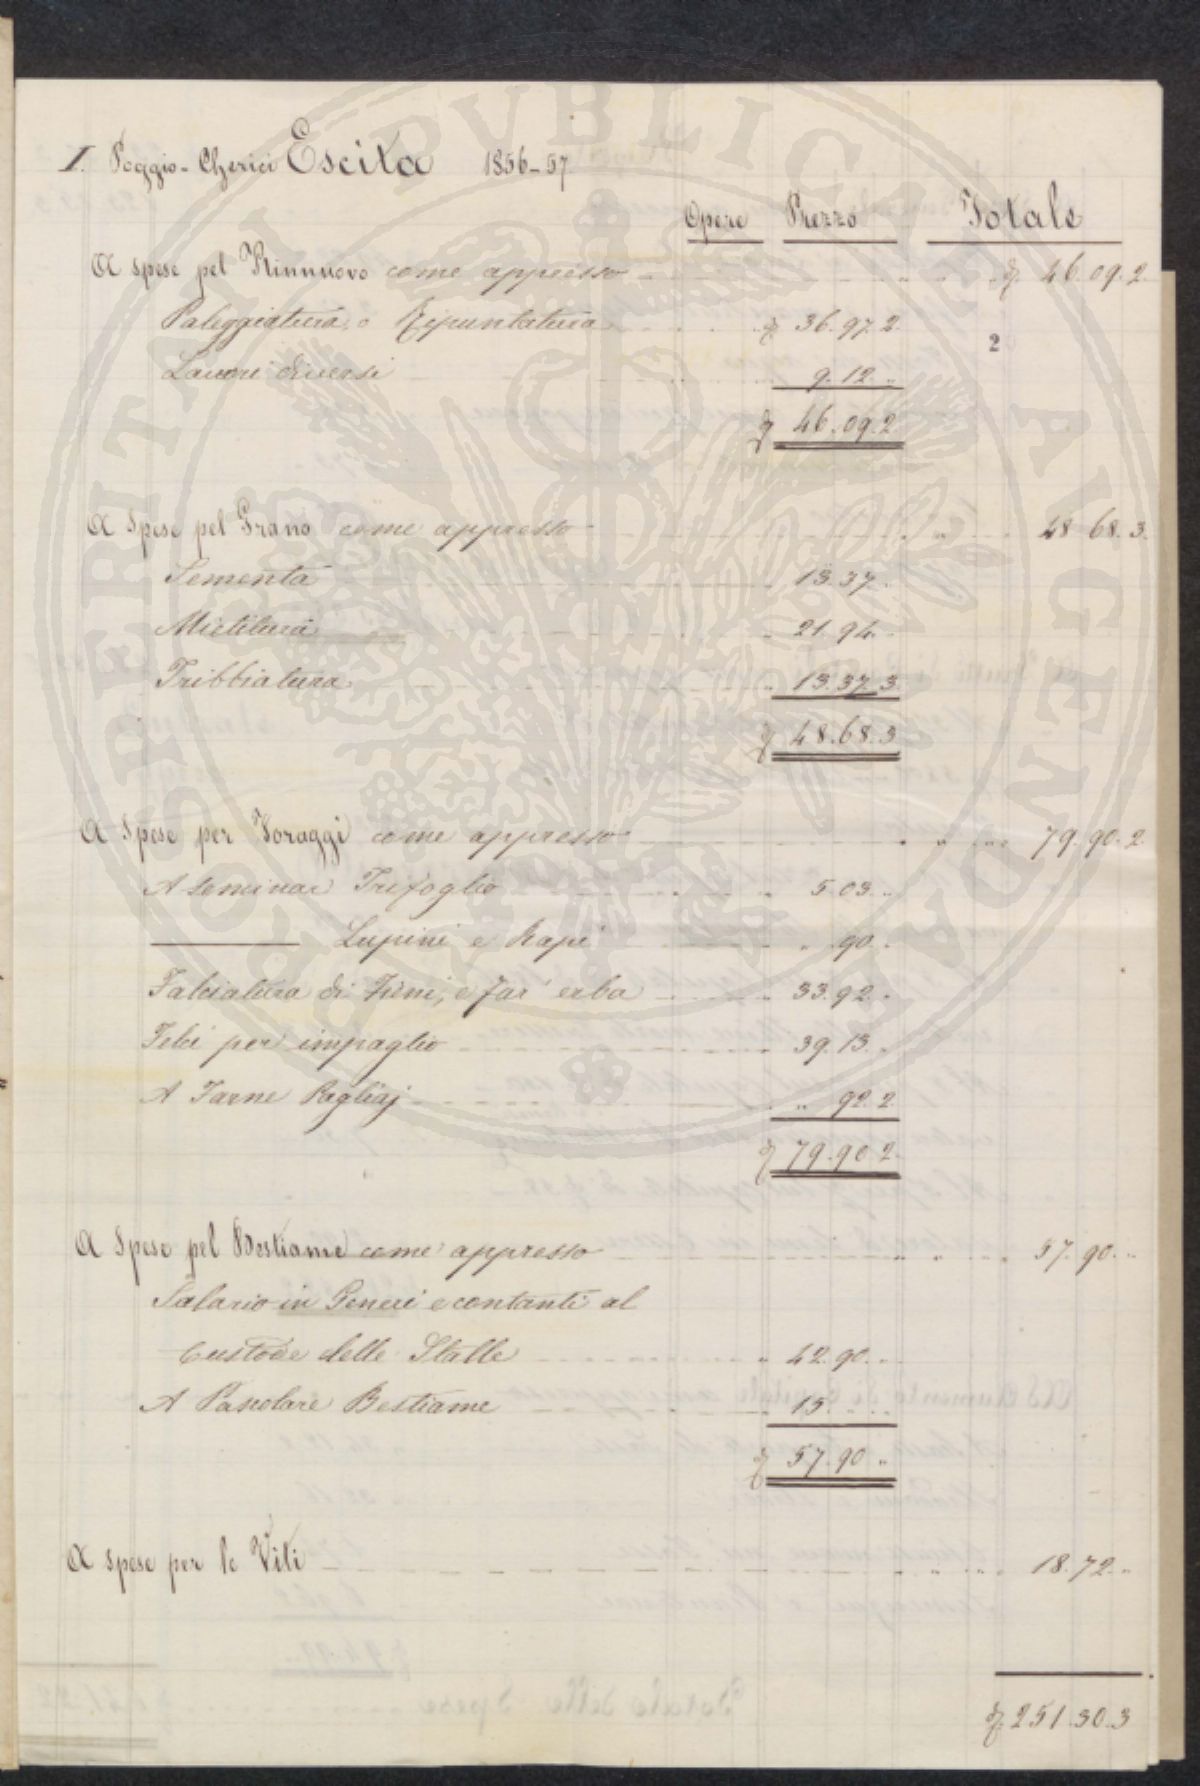 I. Poggio-Cherici Escita 1856-57
Opere Prezzo Totale
A spese pel Rinnuovo come appresso £ 46.09.2
Paleggiatura, o Ripuntatura £ 36.97.2
2
Lavori diversi 9.12.„
£ 46.09.2
A Spese pel Grano come appresso „ 48.68.3
Sementa „ 13.37.
Mietitura „ 21.94.
Tribbiatura „ 13.37.3
£ 48.68.3
A Spese per Foraggi come appresso „ 79.90.2
A seminar Trifoglio „ 5.03.„
——— Lupini e Rape „ 90.
Falciatura di Fieni, e far erba „ 33.92.
Felci per impaglio „ 39.13.
A Farne Pagliaj „ 92.2
£ 79.90.2
A Spese pel Bestiame come appresso „ 57.90.„
Salario in Generi e contanti al
Custode delle Stalle „ 42.90.„
A Pastolare Bestiame 15.
£ 57.90 „
A spese per le Viti 18.72.„
£ 251.30.3
PROSPERITATI PVBLICAE AVGENDAE